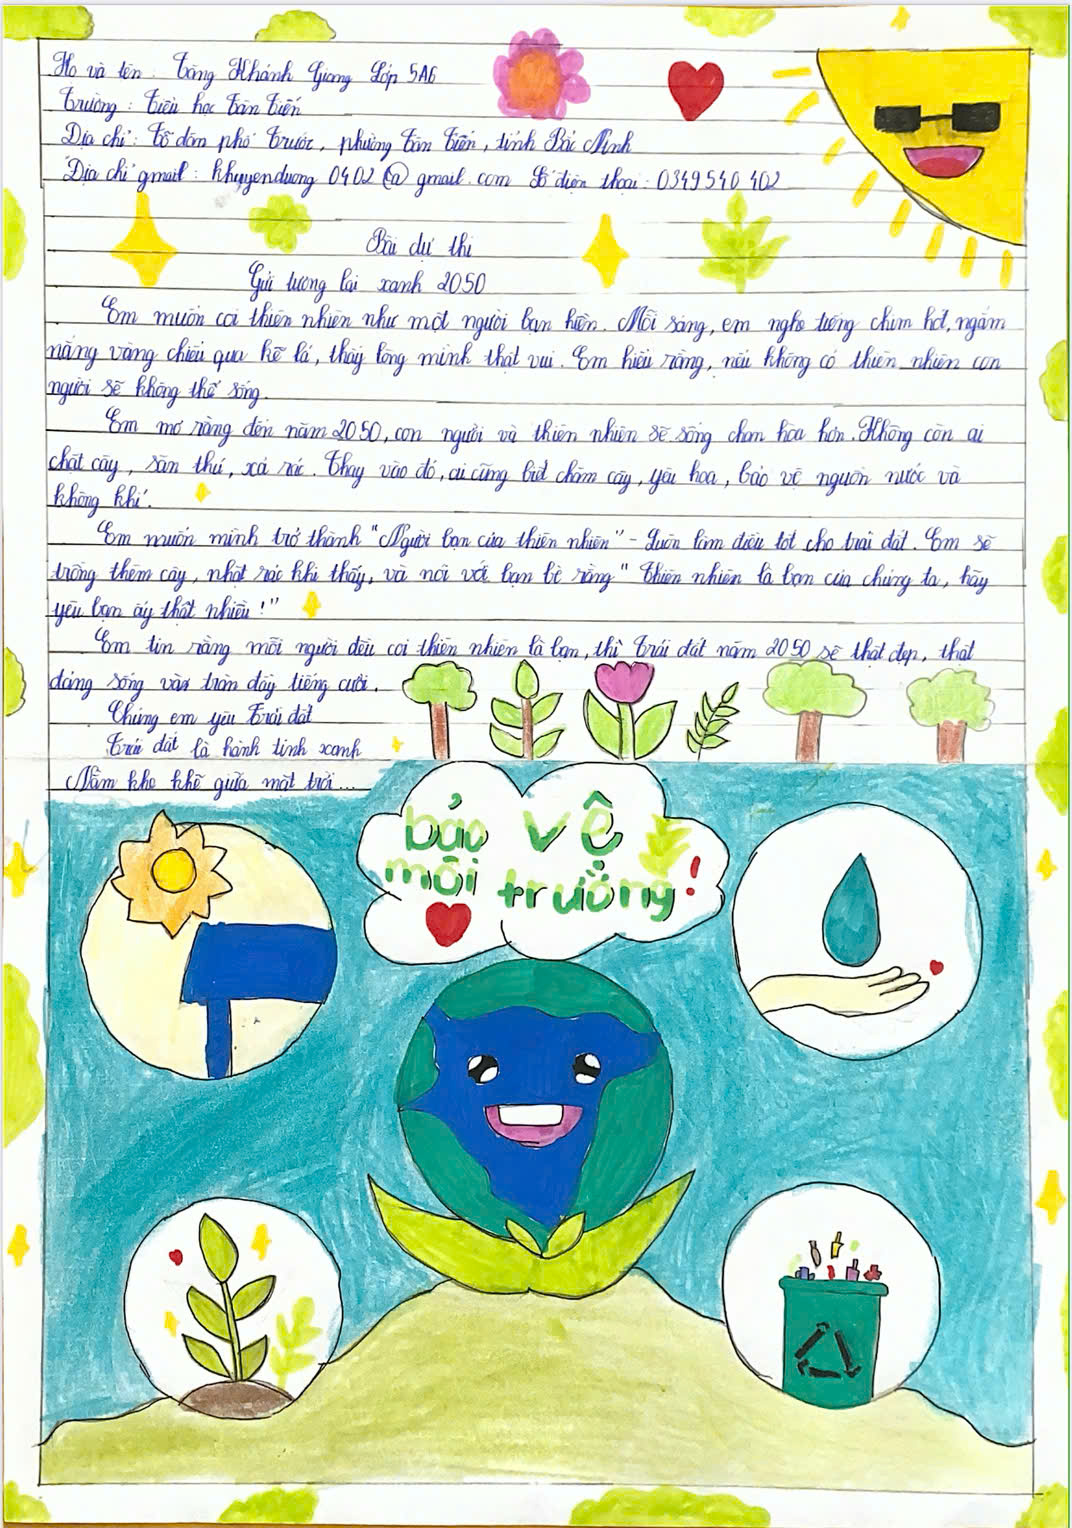 Họ và tên : Tăng Khánh Giang Lớp 5A6
Trường : Tiểu học Tân Tiến
Địa chỉ : Tổ dân phố Trước, phường Tân Tiến, tỉnh Bắc Ninh
Địa chỉ gmail : khuyenduong 0402 @ gmail.com Số điện thoại : 0349540402
Bài dự thi
Gửi tương lai xanh 2050
Em muốn coi thiên nhiên như một người bạn hiền. Mỗi sáng, em nghe tiếng chim hót, ngắm
nắng vàng chiếu qua kẽ lá, thấy lòng mình thật vui. Em hiểu rằng, nếu không có thiên nhiên con
người sẽ không thể sống.
Em mơ rằng đến năm 2050, con người và thiên nhiên sẽ sống chan hòa hơn. Không còn ai
chặt cây, săn thú, xả rác. Thay vào đó, ai cũng biết chăm cây, yêu hoa, bảo vệ nguồn nước và
không khí.
Em muốn mình trở thành "Người bạn của thiên nhiên" - Luôn làm điều tốt cho trái đất. Em sẽ
trồng thêm cây, nhặt rác khi thấy, và nói với bạn bè rằng " Thiên nhiên là bạn của chúng ta, hãy
yêu bạn ấy thật nhiều !"
Em tin rằng mỗi người đều coi thiên nhiên là bạn, thì Trái đất năm 2050 sẽ thật đẹp, thật
đáng sống và tràn đầy tiếng cười.
Chúng em yêu Trái đất
Trái đất là hành tinh xanh
Nằm khe khẽ giữa mặt trời...
bảo vệ
môi trường!